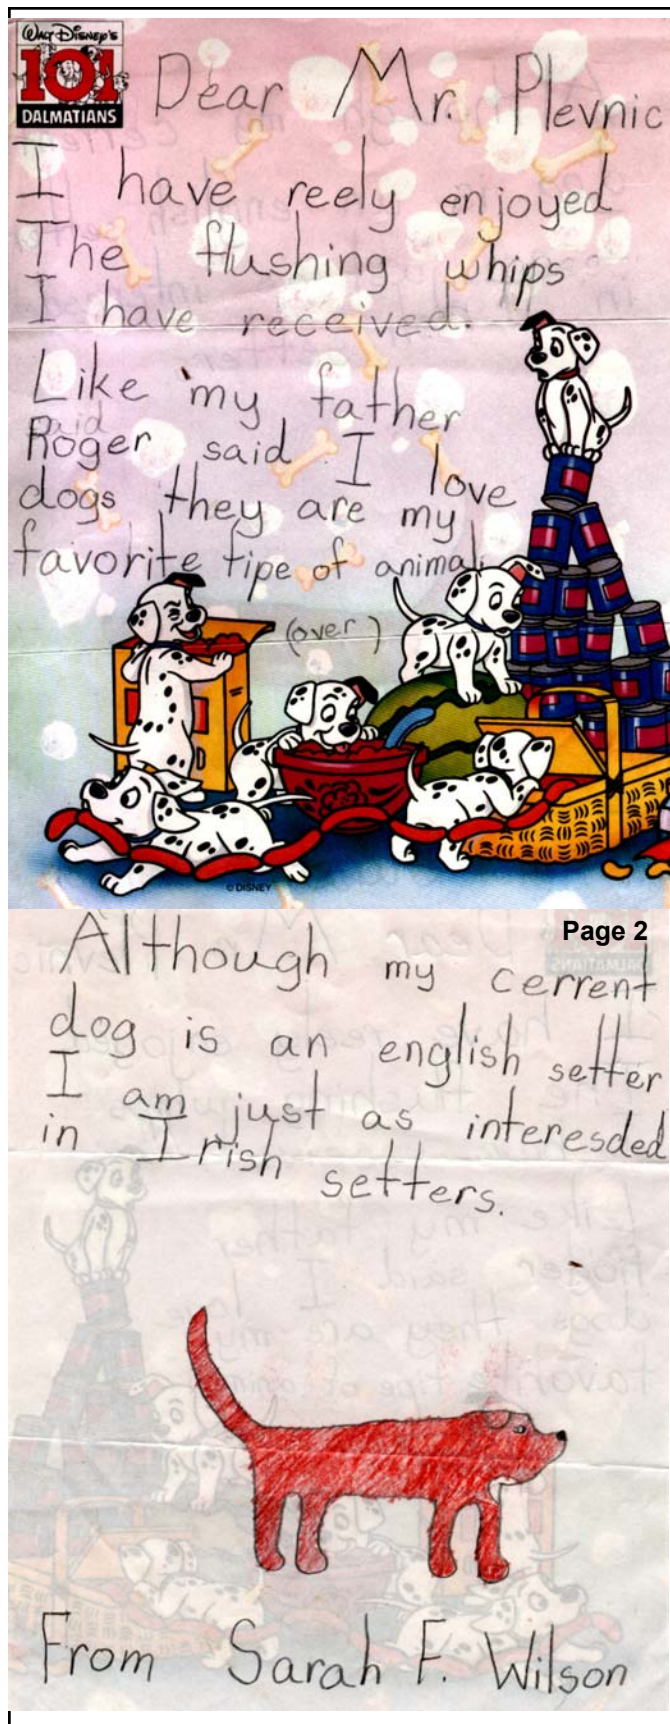 WALT DISNEY'S
101
DALMATIANS
Dear Mr. Plevnic
I have reely enjoyed
The flushing whips
I have received.
Like my father
said
Roger said I love
dogs they are my
favorite tipe of animal
(over)
© DISNEY
Page 2
Although my cerrent
dog is an english setter
I am just as interesded
in Irish setters.
From Sarah F. Wilson